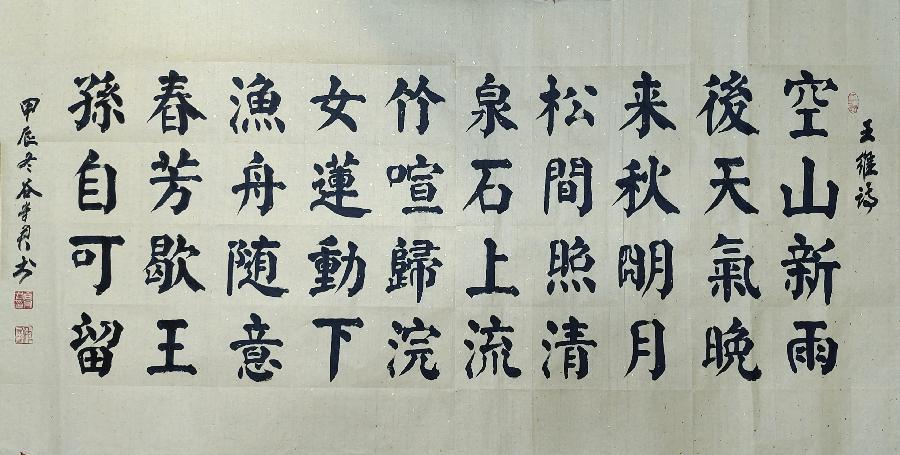 王維詩
空山新雨
後天氣晚
来秋明月
松間照清
泉石上流
竹喧歸浣
女蓮動下
漁舟随意
春芳歇王
孫自可留
甲辰冬谷书